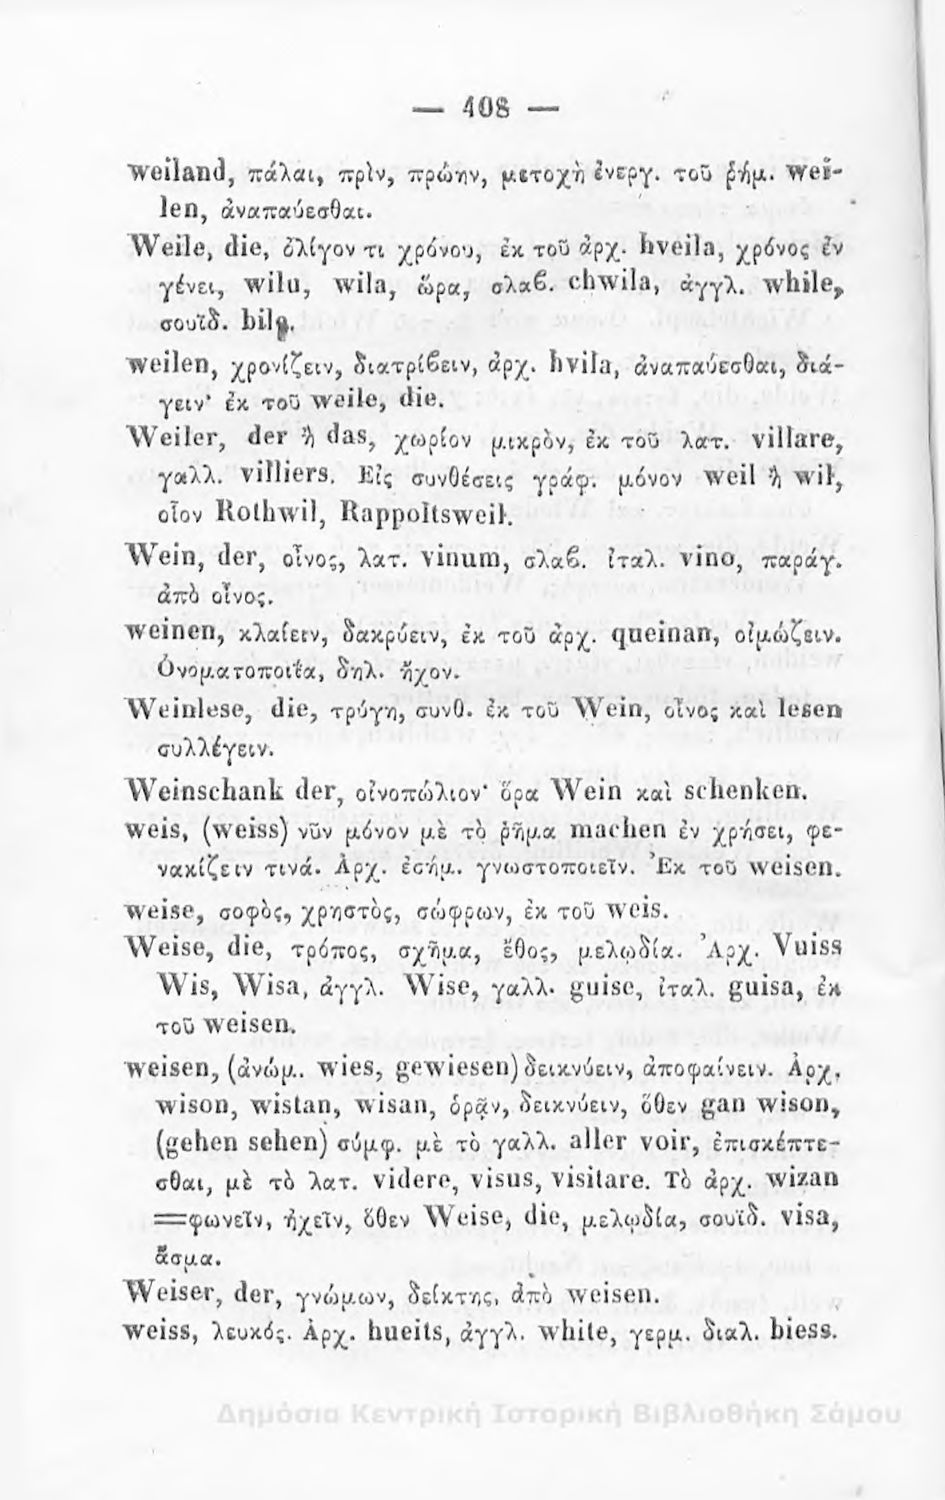 — 408 —
weiland, πάλαι, πρὶν, πρώην, μετοχὴ ἐνεργ. τοῦ ῥήμ. wei-
len, ἀναπαύεσθαι.
Weile, die, ὀλίγον τι χρόνου, ἐκ τοῦ ἀρχ. hveila, χρόνος ἐν
γένει, wilu, wila, ὥρα, σλαβ. chwila, ἀγγλ. while,
σουΐδ. hila.
weilen, χρονίζειν, διατρίβειν, ἀρχ. hvila, ἀναπαύεσθαι, διά-
γειν· ἐκ τοῦ weile, die.
Weiler, der ἢ das, χωρίον μικρὸν, ἐκ τοῦ λατ. villare,
γαλλ. villiers. Εἰς συνθέσεις γράφ. μόνον weil ἢ wil,
οἷον Rothwil, Rappoltsweil.
Wein, der, οἶνος, λατ. vinum, σλαβ. ἰταλ. vino, παράγ.
ἀπὸ οἶνος.
weinen, κλαίειν, δακρύειν, ἐκ τοῦ ἀρχ. queinan, οἰμώζειν.
Ὀνοματοποιΐα, δηλ. ἤχον.
Weinlese, die, τρύγη, συνθ. ἐκ τοῦ Wein, οἶνος καὶ lesen
συλλέγειν.
Weinschank der, οἰνοπώλιον· ὅρα Wein καὶ schenken.
weis, (weiss) νῦν μόνον μὲ τὸ ῥῆμα machen ἐν χρήσει, φε-
νακίζειν τινά. Ἀρχ. ἐσήμ. γνωστοποιεῖν. Ἐκ τοῦ weisen.
weise, σοφὸς, χρηστὸς, σώφρων, ἐκ τοῦ weis.
Weise, die, τρόπος, σχῆμα, ἔθος, μελῳδία. Ἀρχ. Vuiss
Wis, Wisa, ἀγγλ. Wise, γαλλ. guise, ἰταλ. guisa, ἐκ
τοῦ weisen.
weisen, (ἀνώμ. wies, gewiesen) δεικνύειν, ἀποφαίνειν. Ἀρχ.
wison, wistan, wisan, ὁρᾷν, δεικνύειν, ὅθεν gan wison,
(gehen sehen) σύμφ. μὲ τὸ γαλλ. aller voir, ἐπισκέπτε-
σθαι, μὲ τὸ λατ. videre, visus, visitare. Τὸ ἀρχ. wizan
=φωνεῖν, ἠχεῖν, ὅθεν Weise, die, μελῳδία, σουΐδ. visa,
ἄσμα.
Weiser, der, γνώμων, δείκτης, ἀπὸ weisen.
weiss, λευκός. Ἀρχ. hueits, ἀγγλ. white, γερμ. διαλ. biess.
Δημόσια Κεντρική Ιστορική Βιβλιοθήκη Σάμου